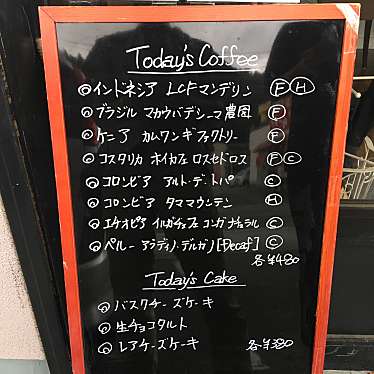 Today's Coffee
インドネシア LCFマンデリン Ⓕ Ⓗ
ブラジル マカウバデシーマ農園 Ⓕ
ケニア カムワンギファクトリー Ⓕ
コスタリカ オイカフェ ロスセドロス Ⓕ Ⓒ
コロンビア アルト・デ・トパ Ⓒ
コロンビア タママウンテン Ⓗ
エチオピア イルガチェフェ コンガ ナチュラル Ⓒ
ペルー アラディノ・デルガド [Decaf] Ⓒ
各¥480
Today's Cake
バスクチーズケーキ
生チョコタルト
レアチーズケーキ 各¥380